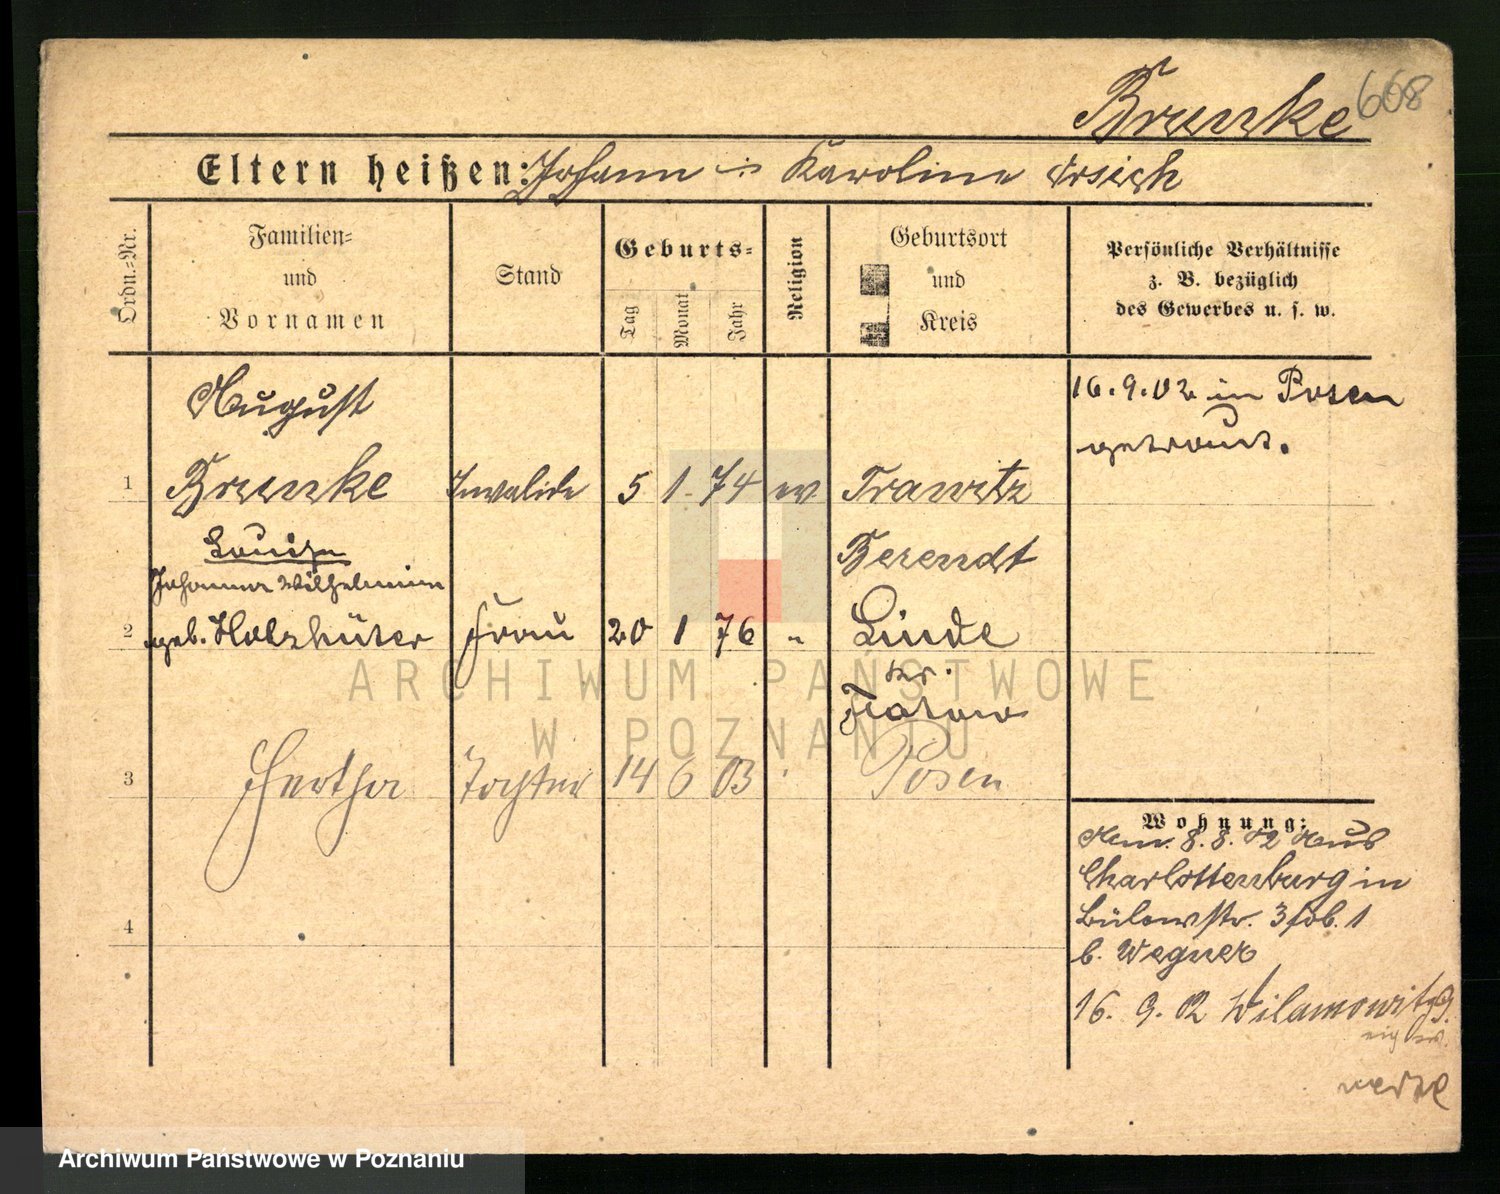 Brunke 668
Eltern heißen: Johann u. Karoline Orsich
Ordn.-Nr.
Familien-
und
Vornamen
Stand
Geburts-
Tag
Monat
Jahr
Religion
Geburtsort
und
Kreis
Persönliche Verhältnisse
z. B. bezüglich
des Gewerbes u. s. w.
August
1 Brunke Invalide 5 1. 74 ev Trawitz
Berendt
16.9.02 in Posen
getraut.
Louise
Johanna Wilhelmine
2 geb. Holzhüter Frau 20 1 76 " Linde
Kr.
Flatow
3 Hertha Tochter 14 6 03 " Posen
4
Wohnung:
Anm. 8. 8. 02 aus
Charlottenburg in
Bülowstr. 3
b. Wegner
16. 9. 02 Wilamowitz 9.
ARCHIWUM PAŃSTWOWE
W POZNANIU
Archiwum Państwowe w Poznaniu